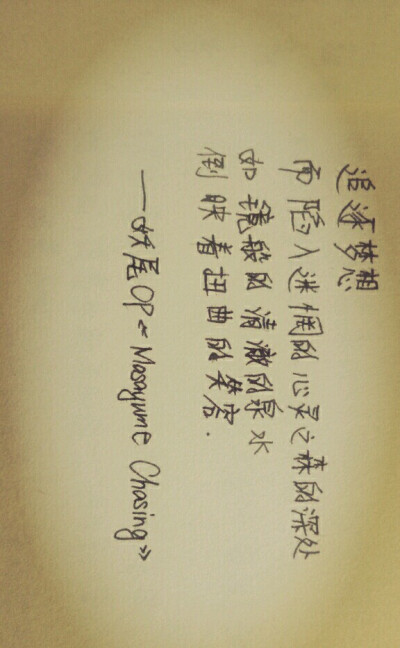 追逐梦想
而陷入迷惘的心灵之森的深处
如镜般的清澈的泉水
倒映着扭曲的笑容.
——妖尾OP《Masayume Chasing》